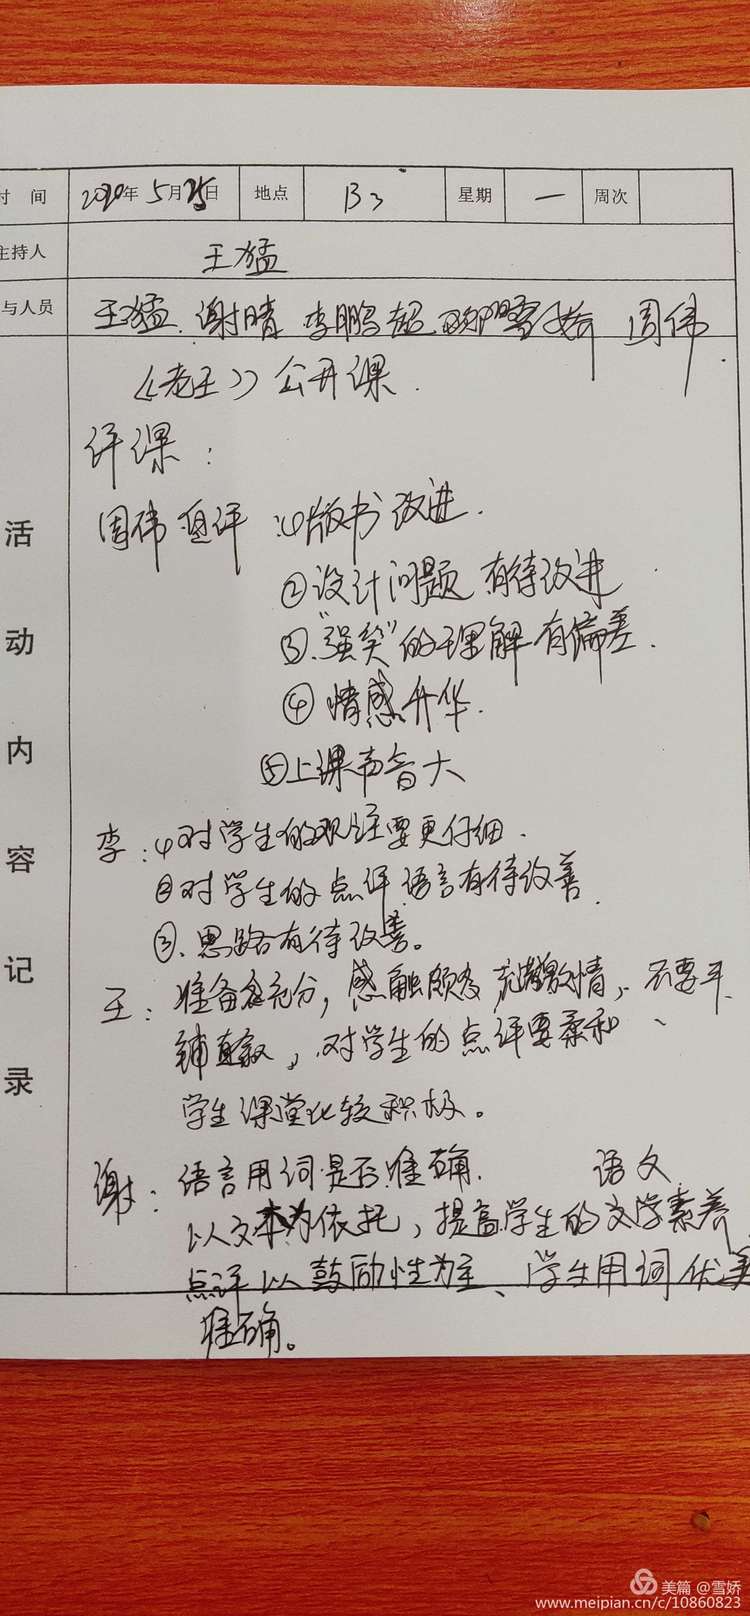 时 间 2020年 5月25日 地点 B3 星期 一 周次
主持人 王猛
与人员 王猛 谢晴 李鹏超 雪娇 周伟
《老王》公开课.
评课：
周伟 评：①版书改进.
②设计问题 有待改进
③."强笑"的理解有偏差.
④情感升华.
⑤上课声音大
李：①对学生的观注要更仔细.
②对学生的点评语言有待改善.
③.思路有待改善。
王：准备充分，感触颇多 充满激情、不要平
铺直叙，对学生的点评要柔和、
学生课堂比较积极。
谢：语言用词是否准确. 语文
以文本为依托，提高学生的文学素养
点评以鼓励性为主、学生用词优美
准确。
活动内容记录
美篇 @雪娇
www.meipian.cn/c/10860823